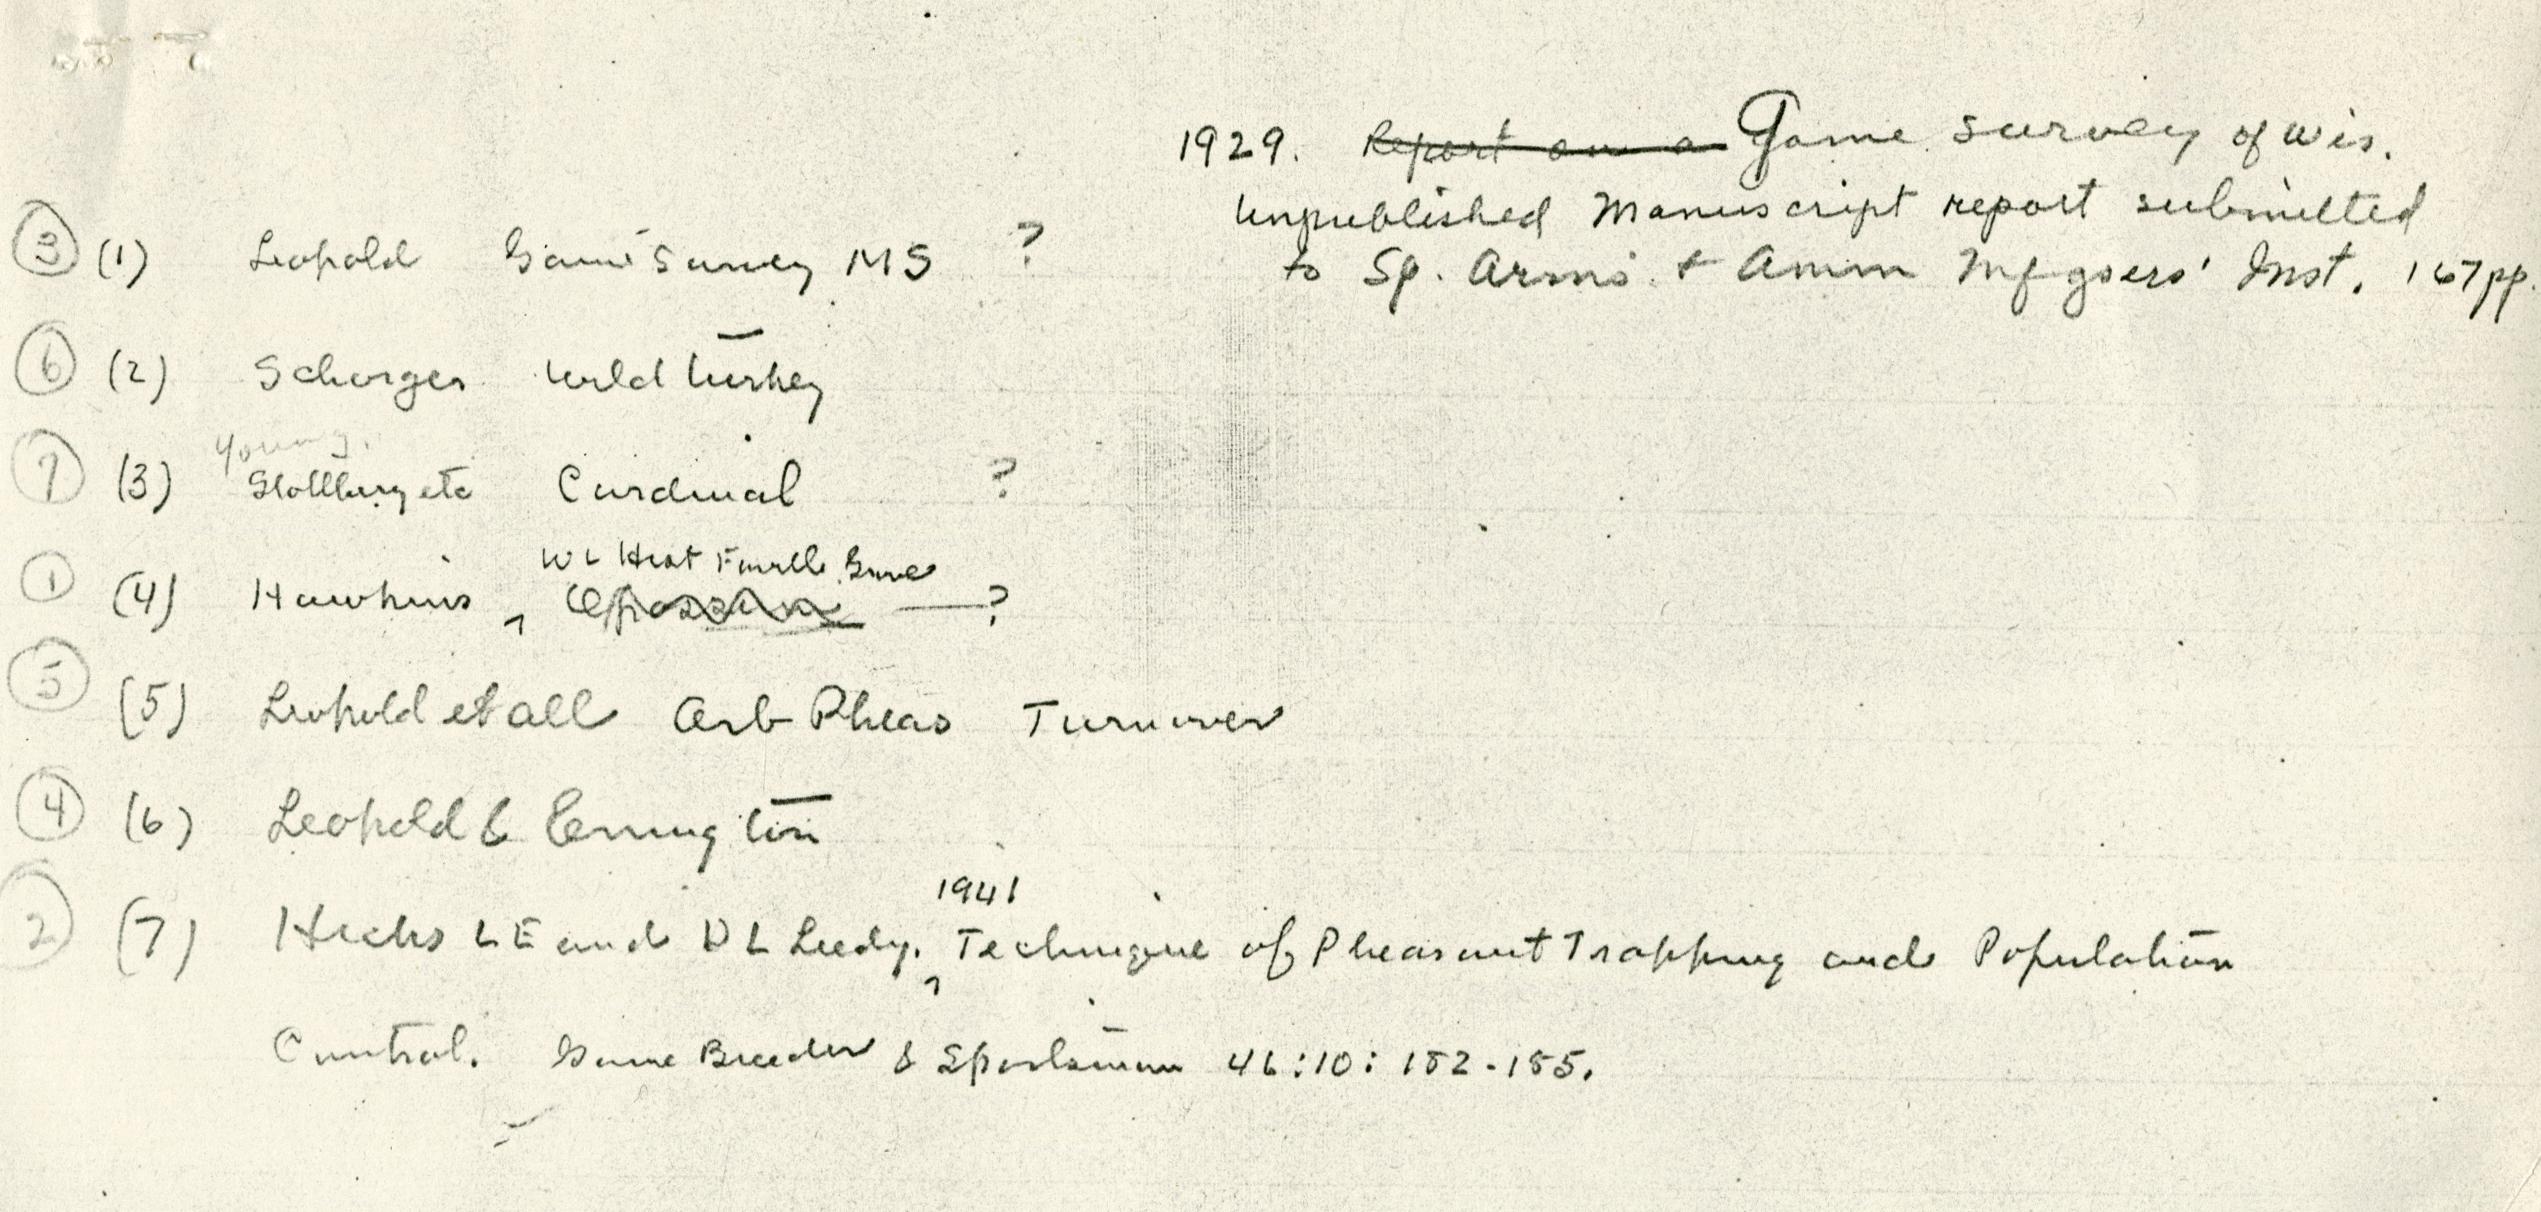 1929. Report on a Game survey of Wis.
unpublished manuscript report submitted
to Sp. Arms & Amm Mfgsers' Inst. 167pp.
③ (1) Leopold Game Survey MS ?
⑥ (2) Schorger Wild Turkey
Young.
⑦ (3) etc Cardinal ?
W L Hist Faville Grove
① (4) Hawkins Opossum —?
⑤ (5) Leopold et all Arb Pheas Turnover
④ (6) Leopold & Errington
1941
② (7) Hicks L E and D L Leedy. Technique of Pheasant Trapping and Population
Control. Game Breeder & Sportsman 46:10: 182-185.